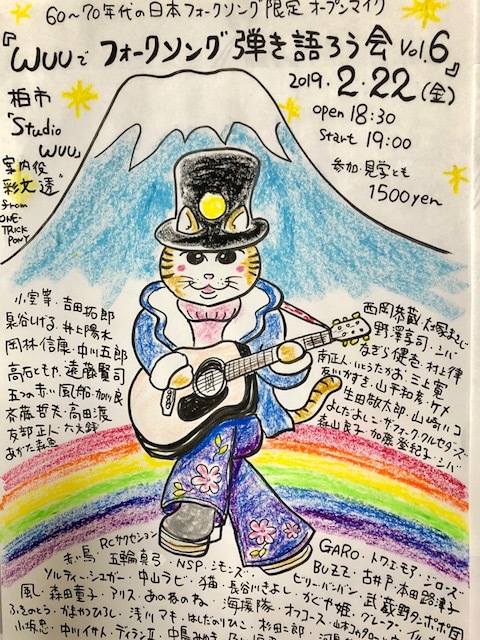 60〜70年代の日本フォークソング限定 オープンマイク
『WUUで フォークソング 弾き語ろう会 Vol.6』
2019.2.22(金)
open 18:30
Start 19:00
参加・見学とも
1500yen
柏市
「Studio
WUU」
案内役
彩文 透
from
ONE-
TRICK
PONY
小室等・吉田拓郎
泉谷しげる・井上陽水
岡林信康・中川五郎
高石ともや・遠藤賢司
五つの赤い風船・加川良
斉藤哲夫・高田渡
友部正人・六文銭
あがた森魚
西岡恭蔵・大塚まさじ
野澤享司・シバ
なぎら健壱・村上律
南正人・いとうたかお・三上寛
友川かずき・山平和彦・ケメ
生田敬太郎・山崎ハコ
よしだよしこ・ザ・フォーク・クルセダーズ
森山良子・加藤登紀子・シバ
RCサクセション
赤い鳥・五輪真弓・NSP・シモンズ
ソルティー・シュガー・中山ラビ・猫・長谷川きよし
風・森田童子・アリス・あのねのね
ふきのとう・かまやつひろし・浅川マキ・はしだのりひこ・杉田二郎
小坂忠・中川イサト・ディランⅡ・中島みゆき
GARO・トワエモア・ジローズ
BUZZ・古井戸・本田路津子
ビリーバンバン・武蔵野タンポポ団
かぐや姫・グレープ
海援隊・オフコース・山本コウタロー